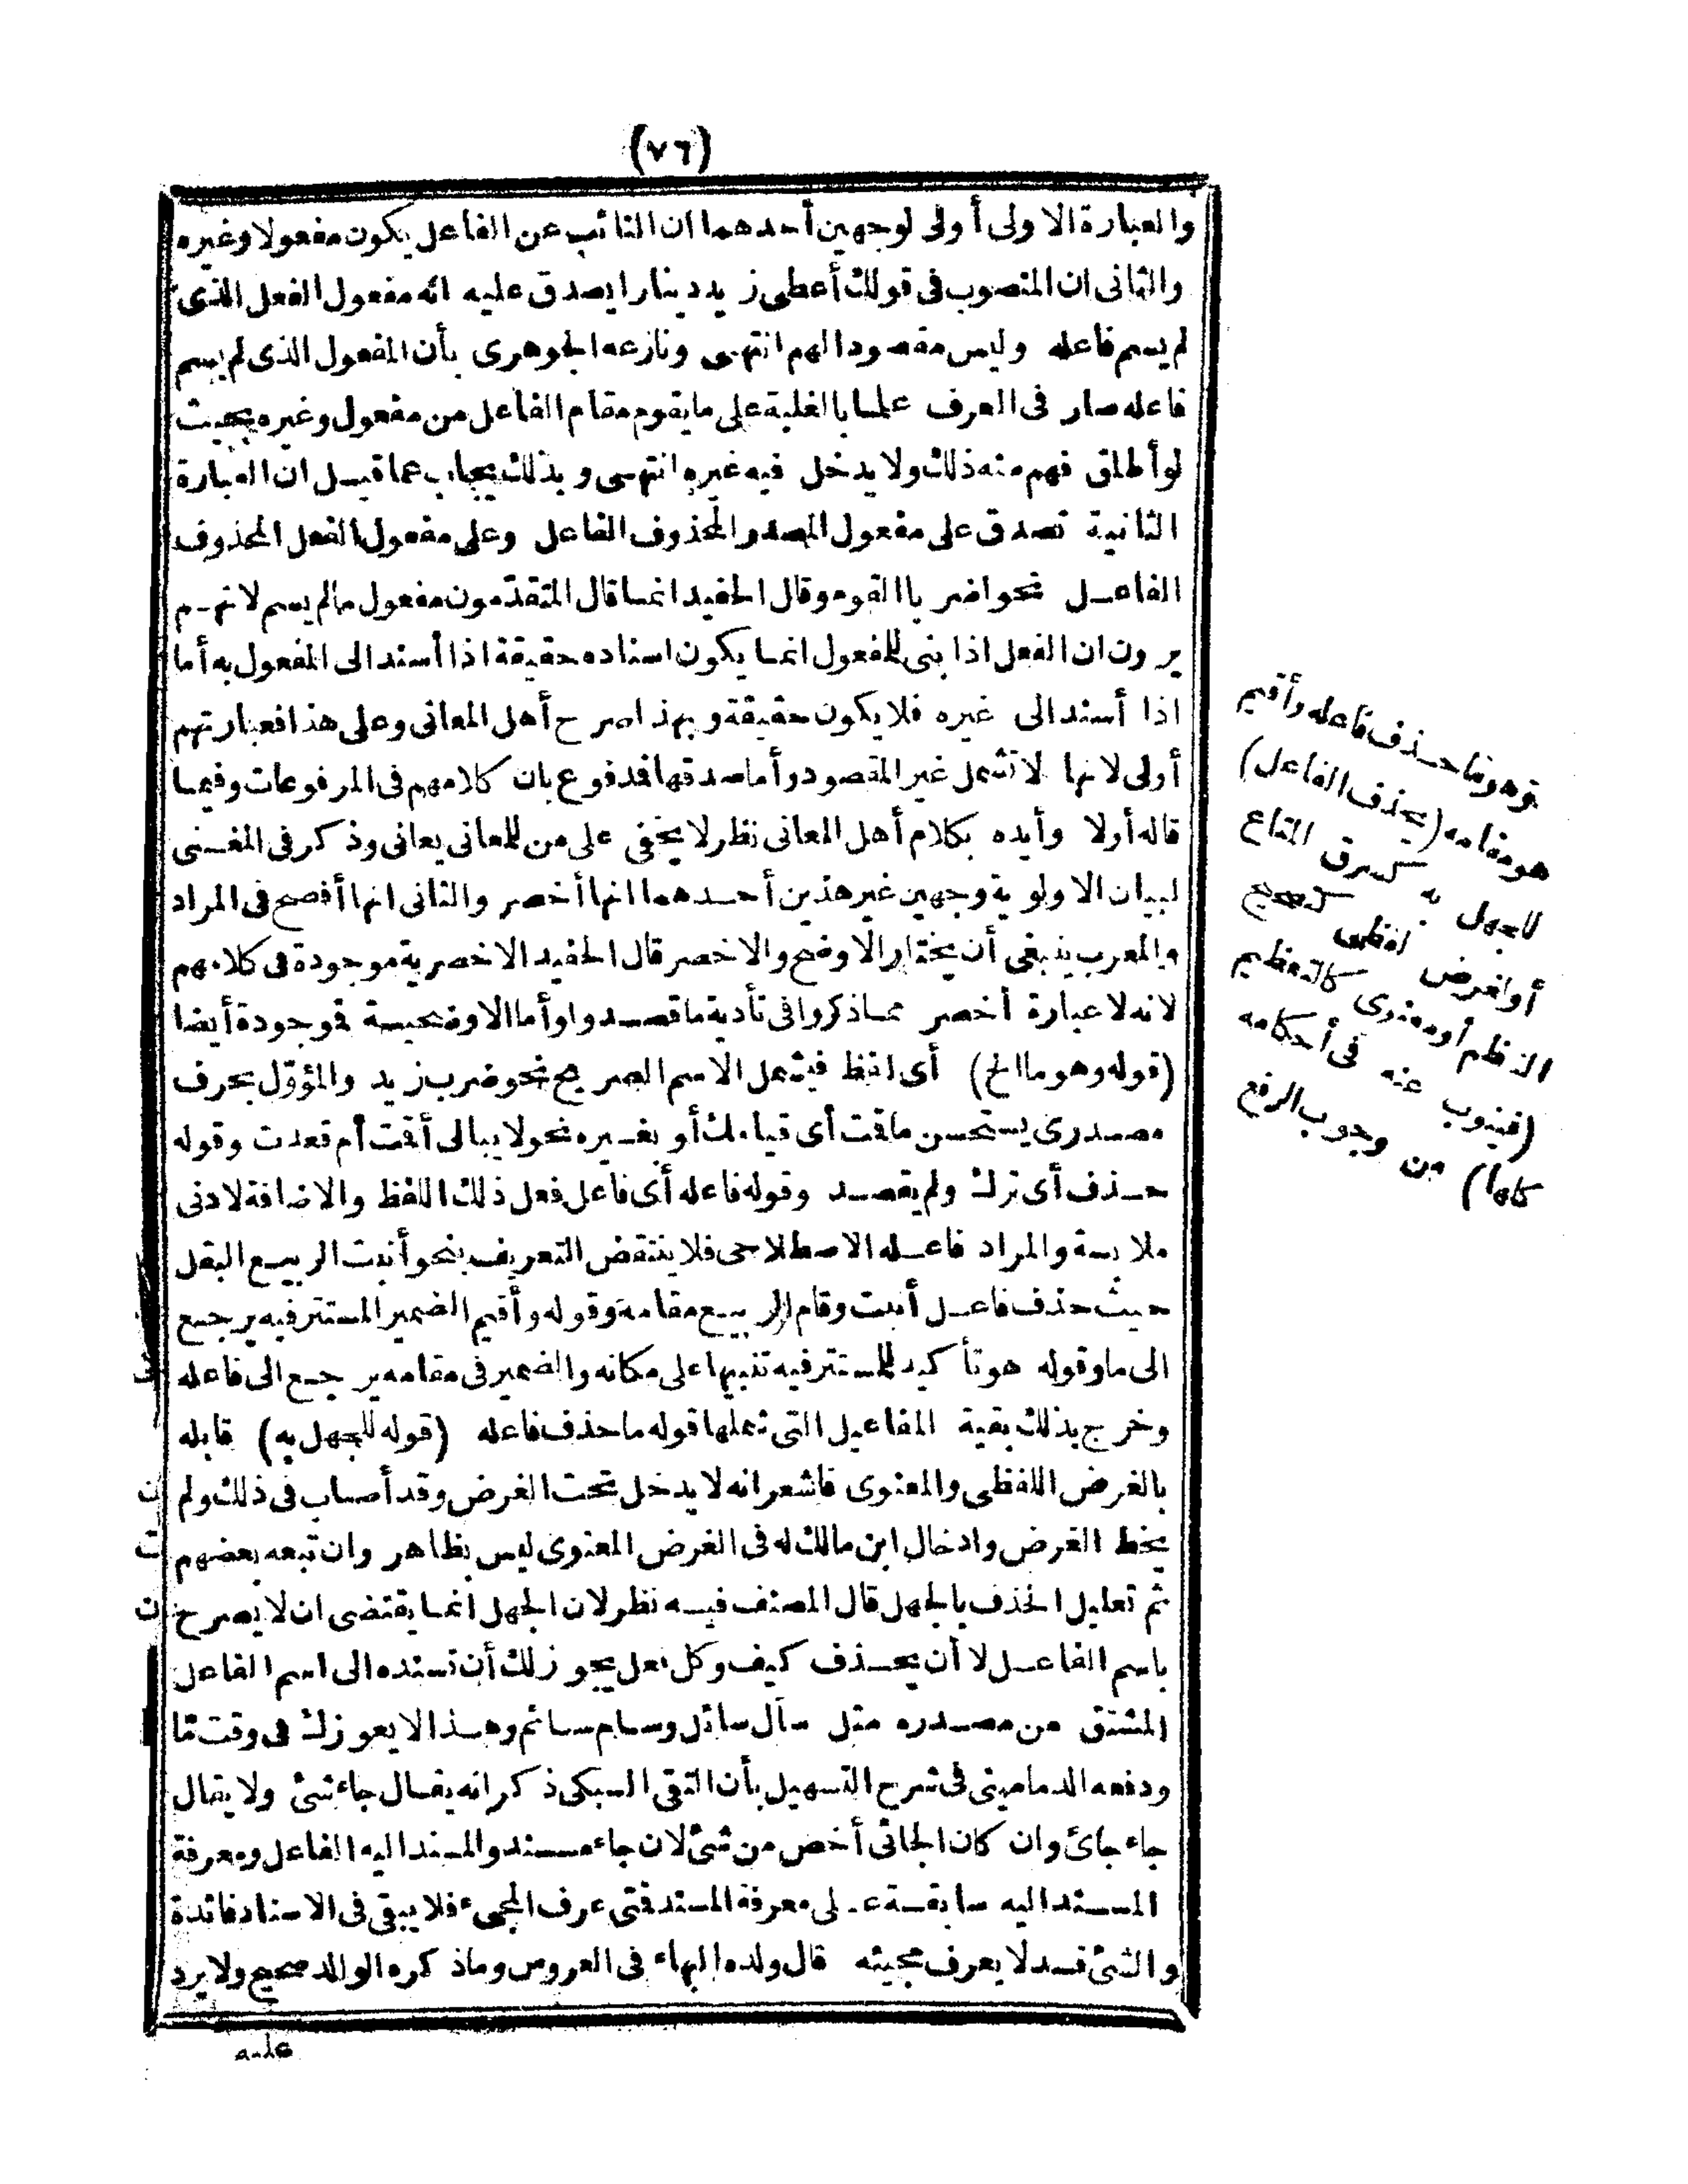 (٧٦)
والعبارة الاولى أولى لوجهين أحدهما ان النائب عن الفاعل يكون مفعولا وغيره
والثانى ان المنصوب فى قولك أعطى زيد دينارا يصدق عليه انه مفعول الفعل الذى
لم يسم فاعله وليس مقصودا لهم انتهى ونازعه الجوهرى بأن المفعول الذى لم يسم
فاعله صار فى العرف علما بالغلبة على ما يقوم مقام الفاعل من مفعول وغيره بحيث
لو أطلق فهم منه ذلك ولا يدخل فيه غيره انتهى وبذلك يجاب عما قيل ان العبارة
الثانية تصدق على مفعول المصدر المحذوف الفاعل وعلى مفعول الفعل المحذوف
الفاعل نحو اضر باالقوم وقال الحفيد انما قال المتقدّمون مفعول مالم يسم لانهم
يرون ان الفعل اذا بنى للمفعول انما يكون اسناده حقيقة اذا أسند الى المفعول به أما
اذا أسند الى غيره فلا يكون حقيقة وبهذا صرح أهل المعانى وعلى هذا فعبارتهم
أولى لانها لا تشمل غير المقصود وأما صدقها فمدفوع بان كلامهم فى المرفوعات وفيما
قاله أولا وأيده بكلام أهل المعانى نظر لا يخفى على من للمعانى يعانى وذكر فى المغنى
لبيان الاولوية وجهين غير هذين أحدهما انها أخصر والثانى انها أفصح فى المراد
والمعرب ينبغى أن يختار الاوضح والاخصر قال الحفيد الاخصرية موجودة فى كلامهم
لانه لا عبارة أخصر مما ذكروا فى تأدية ما قصدوا وأما الاوضحية فموجودة أيضا
(قوله وهو ما الخ) أى لفظ فيشمل الاسم الصريح نحو ضرب زيد والمؤوّل بحرف
مصدرى يستحسن ما قمت أى قيامك أو بغيره نحو لا يبالى أقمت أم قعدت وقوله
حذف أى ترك ولم يقصد وقوله فاعله أى فاعل فعل ذلك اللفظ والاضافة لادنى
ملابسة والمراد فاعله الاصطلاحى فلا ينتقض التعريف بنحو أنبت الربيع البقل
حيث حذف فاعل أنبت وقام الربيع مقامه وقوله وأقيم الضمير المستتر فيه يرجع
الى ما وقوله هو تأكيد للمستتر فيه تنبيها على مكانه والضمير فى مقامه يرجع الى فاعله
وخرج بذلك بقية المفاعيل التى شملها قوله ما حذف فاعله (قوله للجهل به) قابله
بالغرض اللفظى والمعنوى فاشعر انه لا يدخل تحت الغرض وقد أصاب فى ذلك ولم
يخط الغرض وادخال ابن مالك له فى الغرض المعنوى ليس بظاهر وان تبعه بعضهم
ثم تعليل الحذف بالجهل قال المصنف فيه نظر لان الجهل انما يقتضى ان لا يصرح
باسم الفاعل لا أن يحذف كيف وكل فعل يجوز لك أن تسنده الى اسم الفاعل
المشتق من مصدره مثل سأل سائل وسام سائم وهذا لا يعوزك فى وقت مّا
ودفعه الدمامينى فى شرح التسهيل بأن التقى السبكى ذكر انه يقال جاء شئ ولا يقال
جاء جائ وان كان الجائى أخص من شئ لان جاء مسند والمسند اليه الفاعل ومعرفة
المسند اليه سابقة على معرفة المسند فمتى عرف المجىء فلا يبقى فى الاسناد فائدة
والشئ قد لا يعرف مجيئه قال ولده البهاء فى العروس وما ذكره الوالد صحيح ولا يرد
عليه
وهو ما حذف فاعله وأقيم
هو مقامه (يحذف الفاعل)
للجهل به كسرق المتاع
أو لغرض لفظى كتصحيح
النظم أو معنوى كالتعظيم
(فينوب عنه فى أحكامه
كلها) من وجوب الرفع